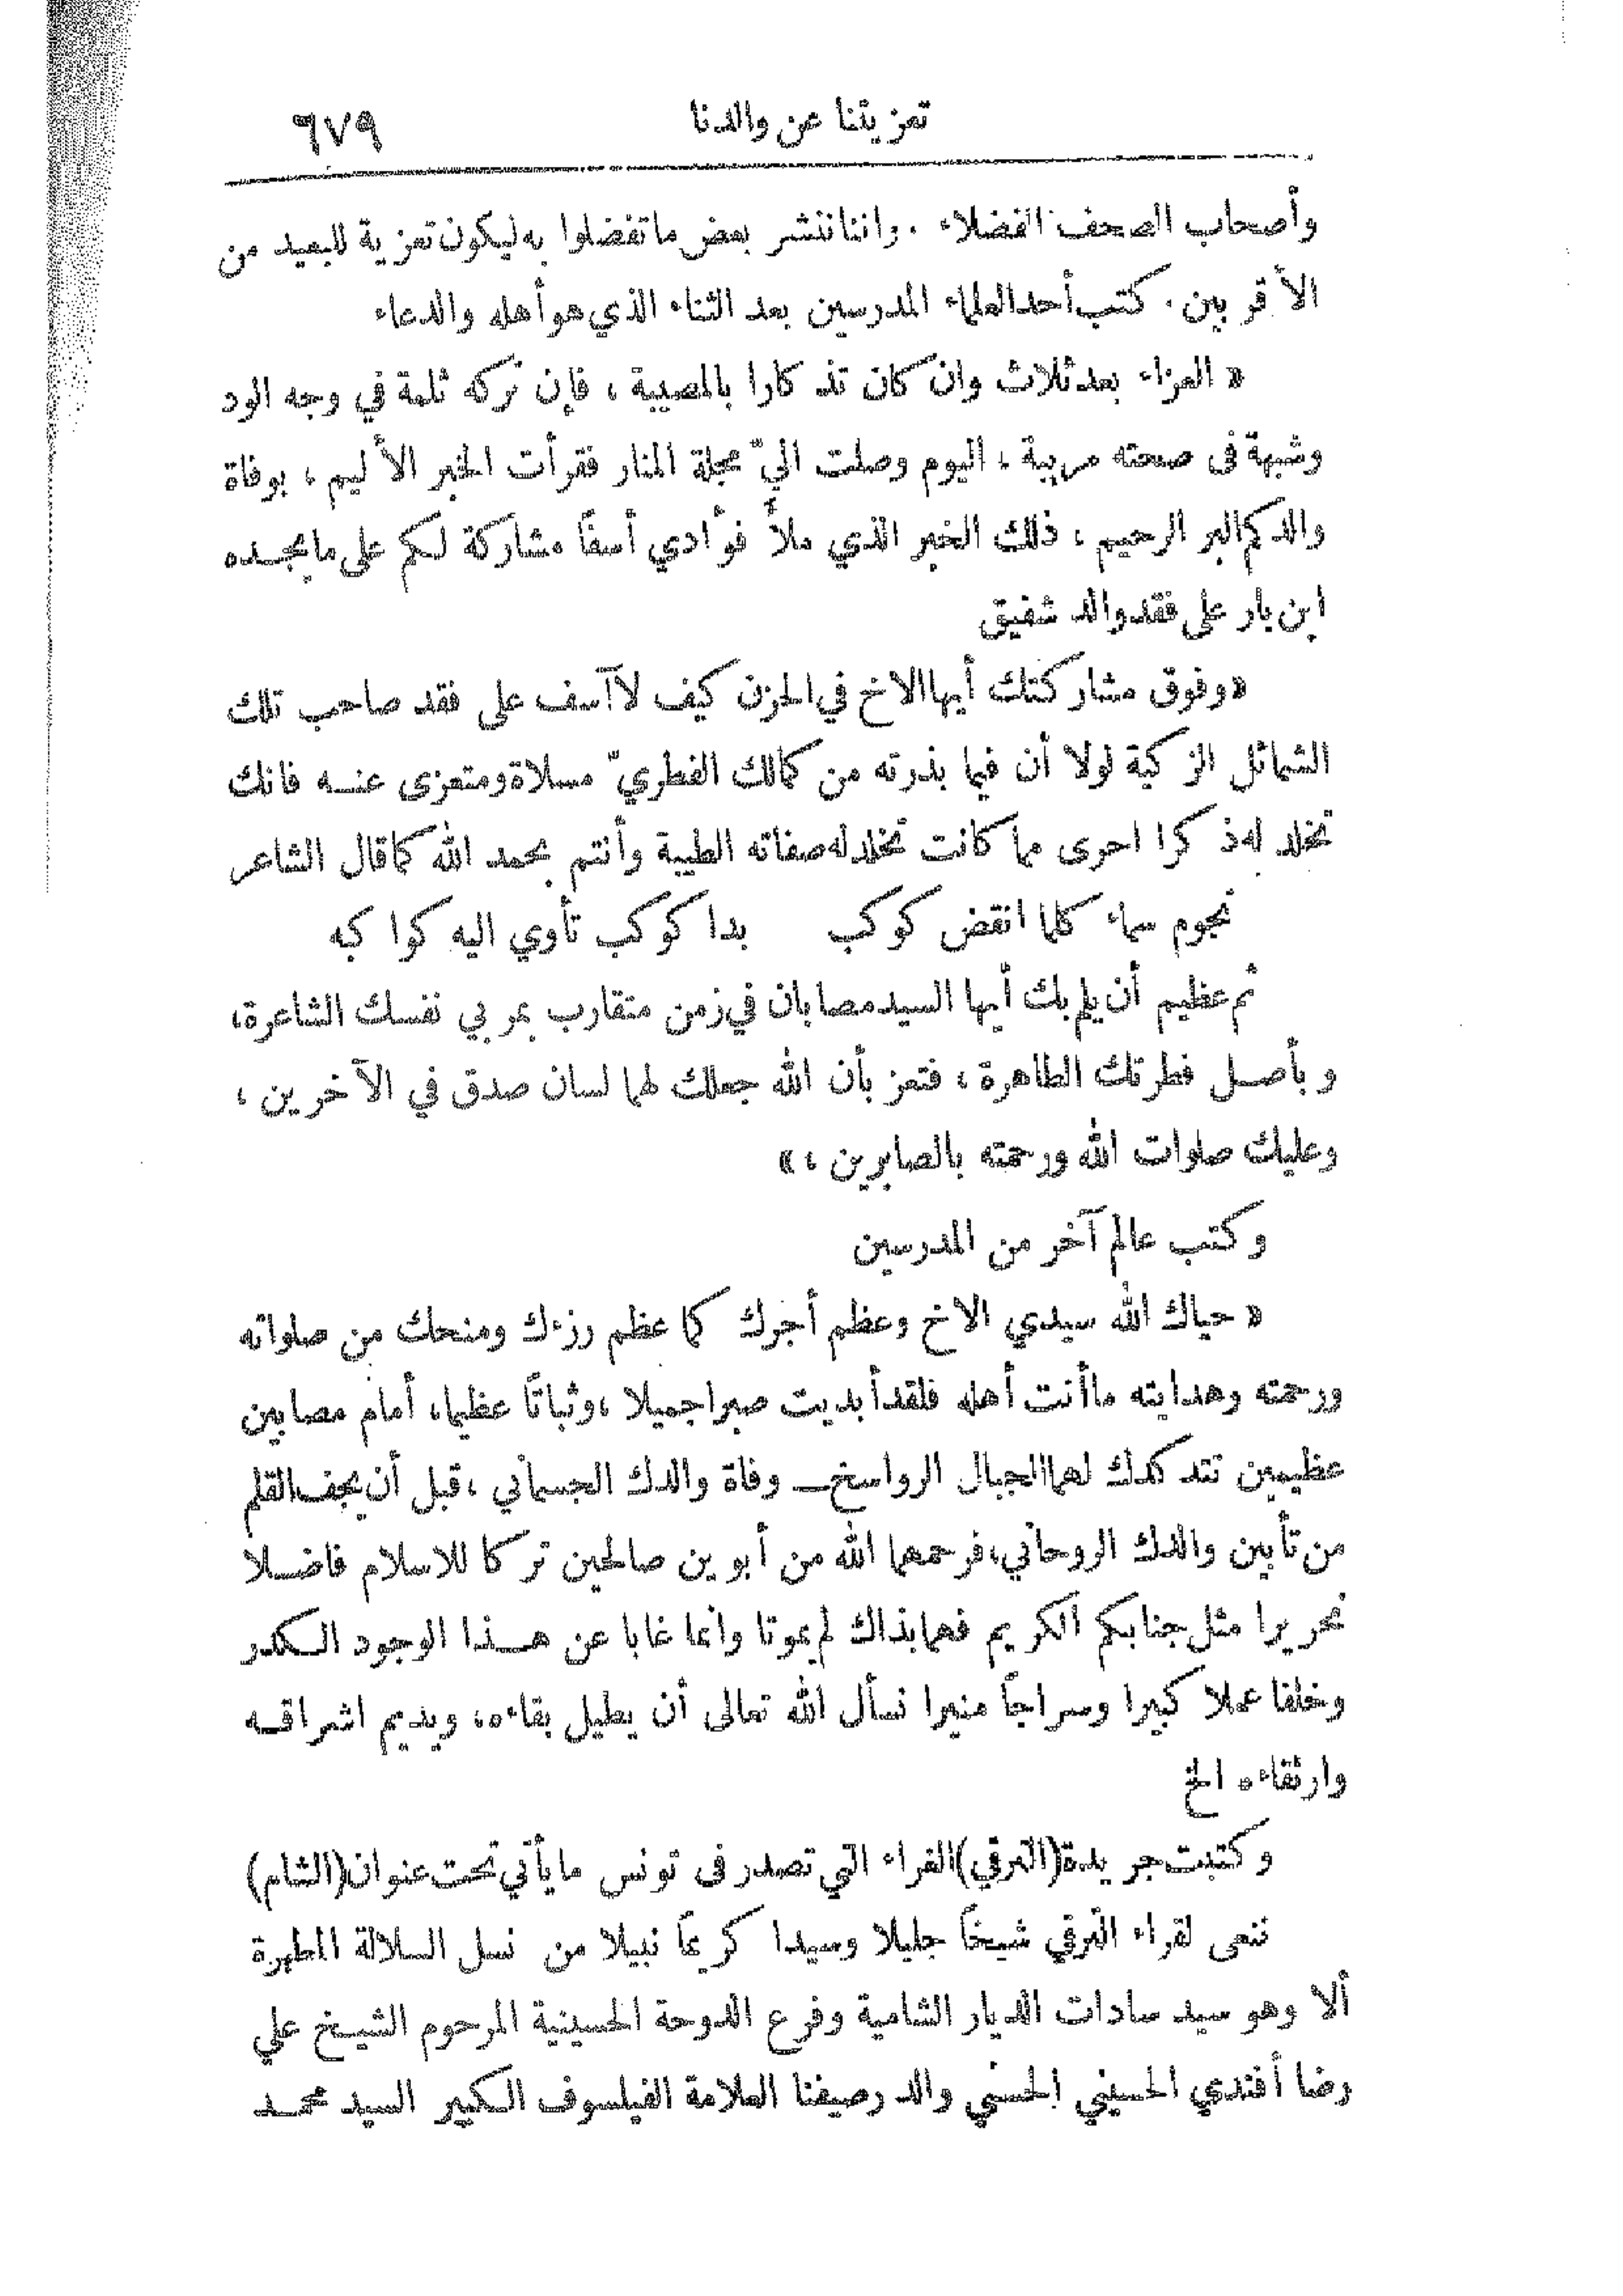 تعزيتنا عن والدنا ٦٧٩
وأصحاب الصحف الفضلاء . واننا ننشر بعض ما تفضلوا به ليكون تعزية للبعيد من
الأقربين . كتب أحد العلماء المدرسين بعد الثناء الذي هو أهله والدعاء
« العزاء بعد ثلاث وان كان تذكارا بالمصيبة ، فإن تركه ثلمة في وجه الود
وشبهة فى صحته مريبة ، اليوم وصلت اليّ مجلة المنار فقرأت الخبر الأليم ، بوفاة
والدكم البر الرحيم ، ذلك الخبر الذي ملأ فؤادي أسفًا مشاركة لكم على ما يجده
ابن بار على فقد والد شفيق
« وفوق مشاركتك أيها الاخ في الحزن كيف لا آسف على فقد صاحب تلك
الشمائل الزكية لولا أن فيما بذرته من كمالك الفطريّ مسلاة ومتعزى عنه فانك
تخلد له ذكرا احرى مما كانت تخلد له صفاته الطيبة وأنتم بحمد الله كما قال الشاعر
نجوم سماء كلما انقض كوكب بدا كوكب تأوي اليه كواكبه
ثم عظيم أن يلم بك أيها السيد مصابان في زمن متقارب بمربي نفسك الشاعرة،
وبأصل فطرتك الطاهرة ، فتعز بأن الله جعلك لهما لسان صدق في الآخرين ،
وعليك صلوات الله ورحمته بالصابرين ، »
وكتب عالم آخر من المدرسين
« حياك الله سيدي الاخ وعظم أجرك كما عظم رزءك ومنحك من صلواته
ورحمته وهدايته ما أنت أهله فلقد أبديت صبرا جميلا ، وثباتًا عظيما، أمام مصابين
عظيمين تتدكدك لهما الجبال الرواسخ ــ وفاة والدك الجسماني ، قبل أن يجف القلم
من تأبين والدك الروحاني، فرحمهما الله من أبوين صالحين تركا للاسلام فاضلا
نحريرا مثل جنابكم الكريم فهما بذاك لم يموتا وانما غابا عن هذا الوجود الكدر
وخلفا عملا كبيرا وسراجًا منيرا نسأل الله تعالى أن يطيل بقاءه، ويديم اشراقه
وارتقاءه الخ
وكتبت جريدة (الترقي) الغراء التي تصدر فى تونس ما يأتي تحت عنوان (الشام)
ننعى لقراء الترقي شيخًا جليلا وسيدا كريمًا نبيلا من نسل السلالة المطهرة
ألا وهو سيد سادات الديار الشامية وفرع الدوحة الحسينية المرحوم الشيخ علي
رضا أفندي الحسيني الحسني والد رصيفنا العلامة الفيلسوف الكبير السيد محمد